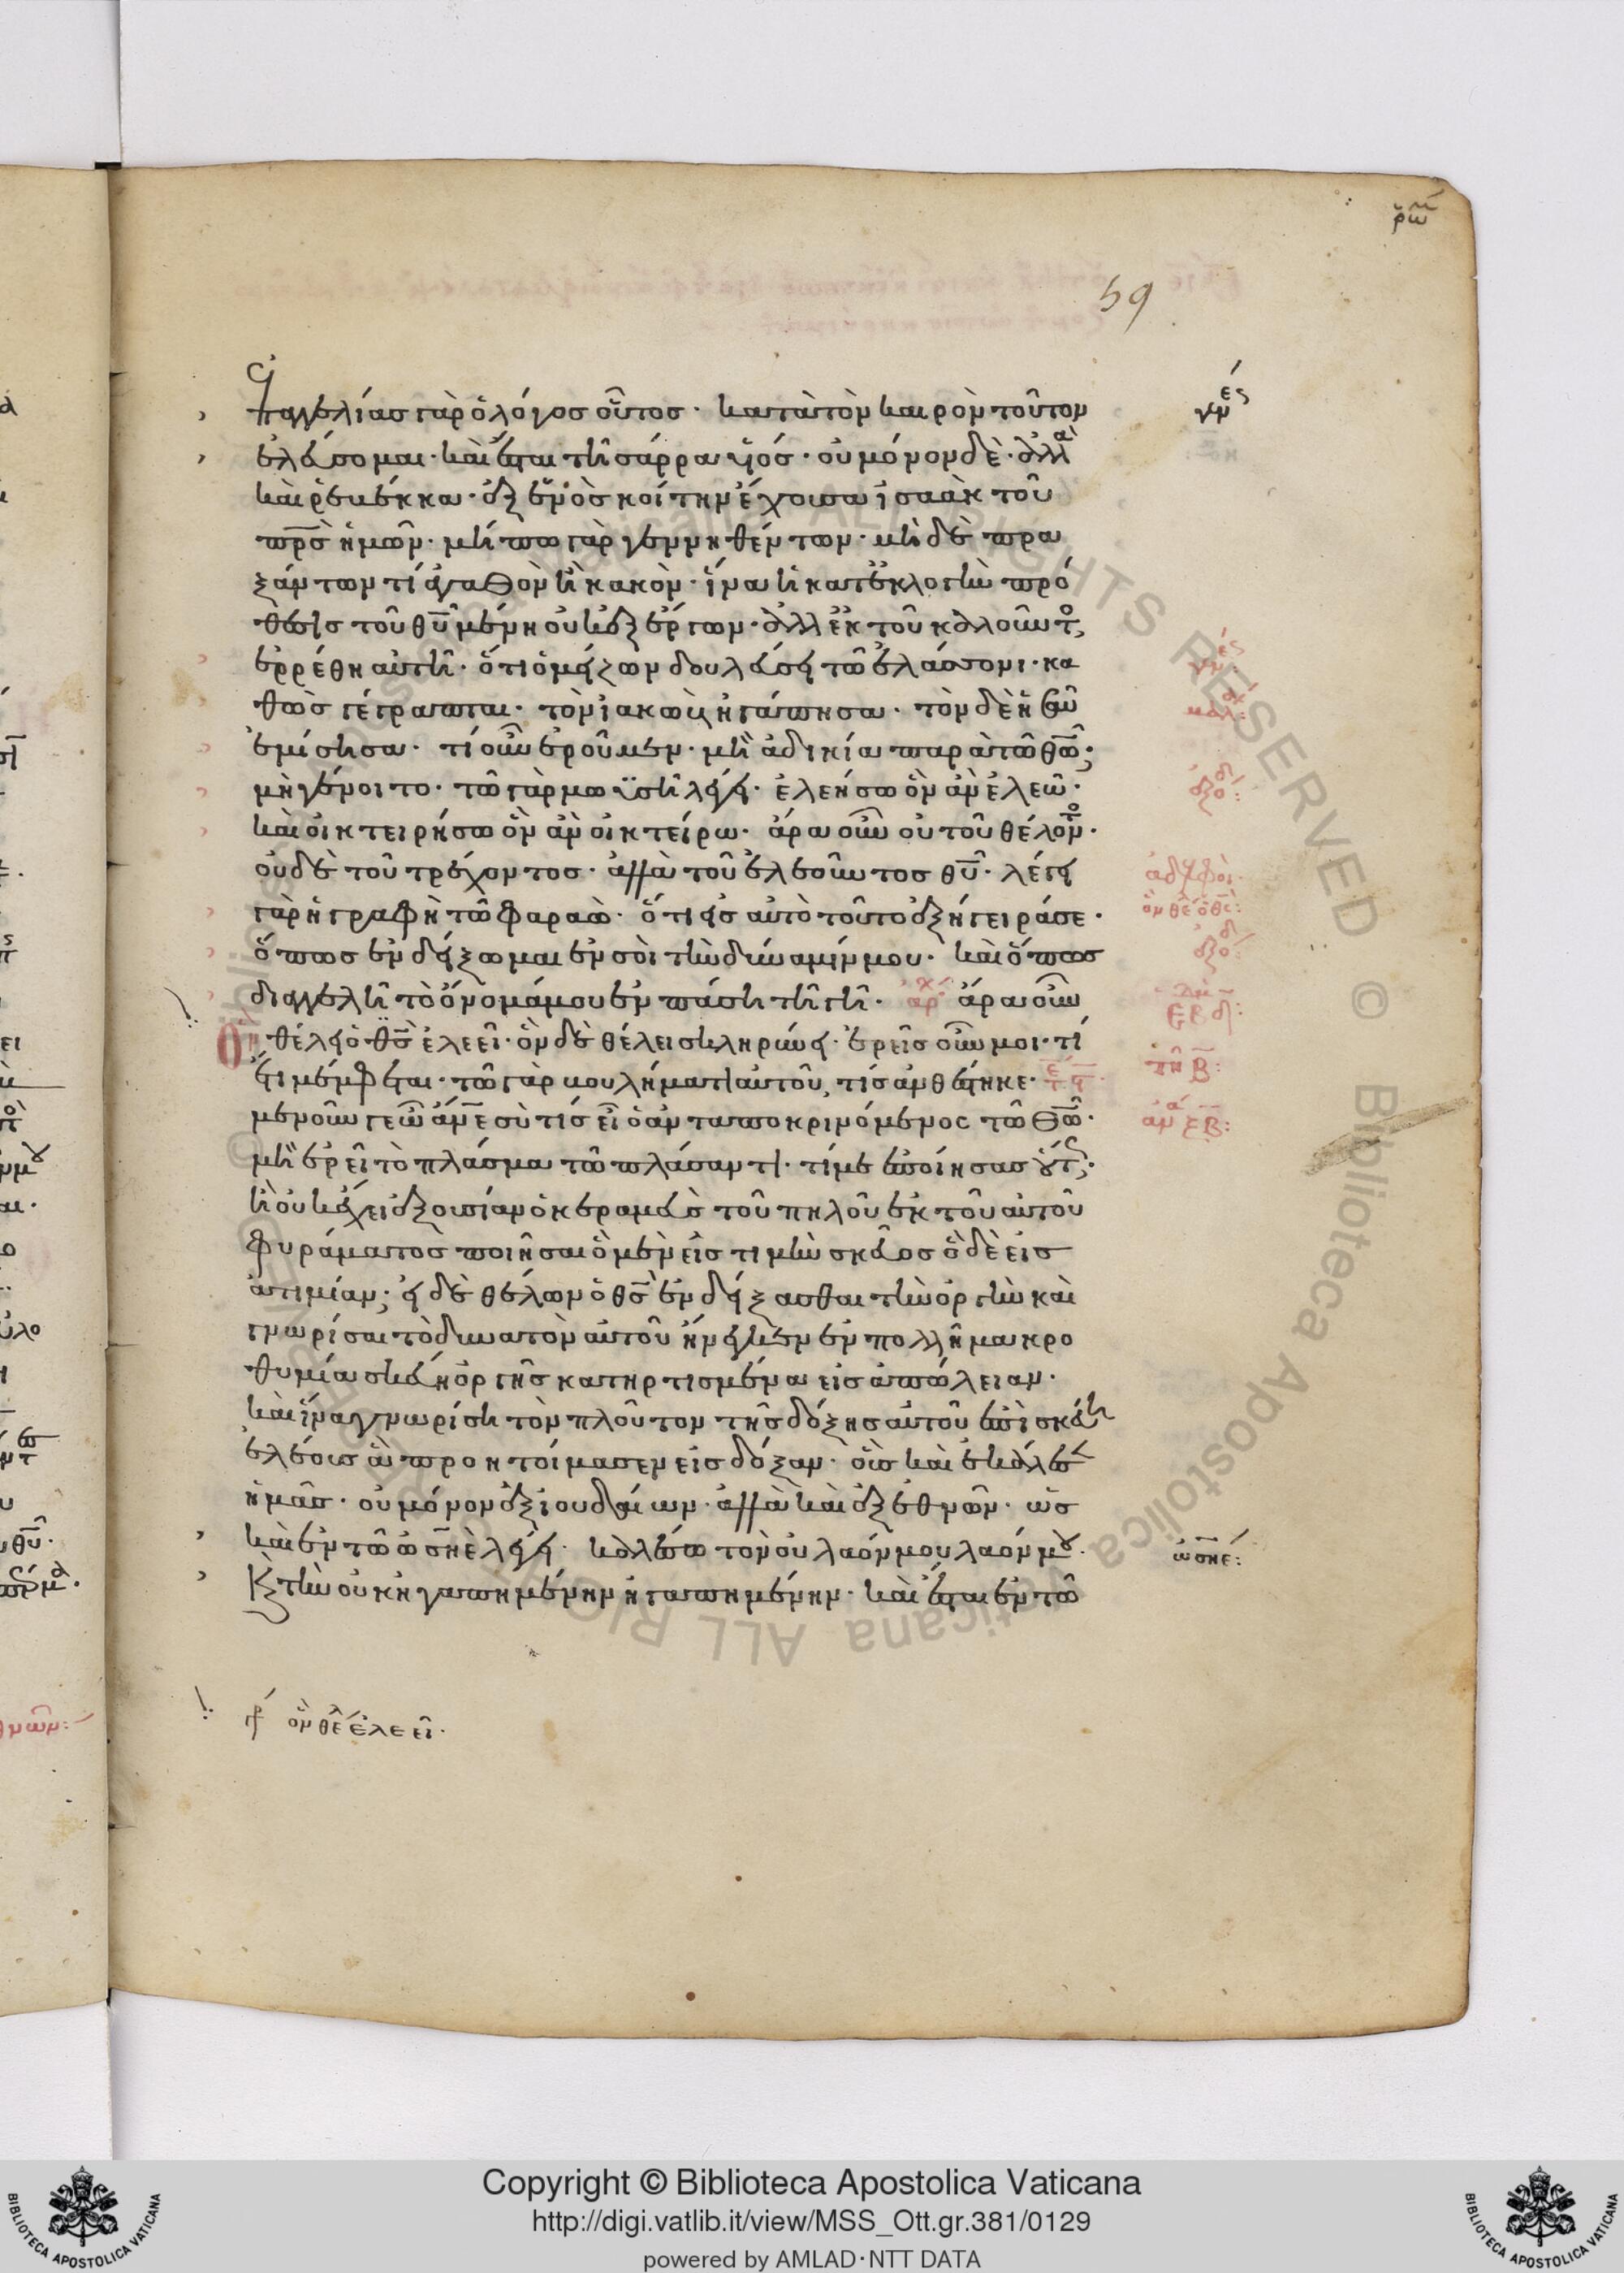 ρωμ
59
ἐπαγγελίας γὰρ ὁ λόγος οὗτος· κατὰ τὸν καιρὸν τοῦτον
ἐλεύσομαι· καὶ ἔσται τῆ σάρρα υἱός· οὐ μόνον δὲ· ἀλλὰ
καὶ ῥεβέκκα· ἐξ ἑνὸς κοίτην ἔχουσα ἰσαὰκ τοῦ
π̅ρ̅ς̅ ἡμῶν· μήπω γὰρ γεννηθέντων· μὴ δὲ πρα
ξάντων τί ἀγαθὸν ἢ κακὸν· ἵνα ἡ κατ' ἐκλογὴν πρό
θεσις τοῦ θ̅υ̅ μένη οὐκ ἐξ ἔργων· ἀλλ' ἐκ τοῦ καλοῦντο(ς)
ἐρρέθη αὐτῆ· ὅτι ὁ μείζων δουλεύσει τῶ ἐλάσσονι· κα
θὼς γέγραπται· τὸν ἰακὼβ ἠγάπησα· τὸν δὲ ἠσαῦ
ἐμίσησα· τί οὖν ἐροῦμεν· μὴ ἀδικία παρὰ τῶ θ̅ω̅;
μὴ γένοιτο· τῶ γὰρ μωϋσῆ λέγει· ἐλεήσω ὃν ἂν ἐλεῶ·
καὶ οἰκτειρήσω ὃν ἂν οἰκτείρω· ἄρα οὖν οὐ τοῦ θέλον(τος)·
οὐδὲ τοῦ τρέχοντος· ἀλλὰ τοῦ ἐλεοῦντος θ̅υ̅· λέγει
γὰρ ἡ γραφὴ τῶ φαραὼ· ὅτι εἰς αὐτὸ τοῦτο ἐξήγειρά σε·
ὅπως ἐνδείξωμαι ἐν σοὶ τὴν δύναμίν μου· καὶ ὅπως
διαγγελῆ τὸ ὄνομά μου ἐν πάση τῆ γῆ· ἀρχ ἄρα οὖν
ὃν θέλει ὁ θ̅ς̅ ἐλεεῖ· ὃν δὲ θέλει σκληρύνει· ἐρεῖς οὖν μοι· τί
ἔτι μέμφεται· τῶ γὰρ βουλήματι αὐτοῦ, τίς ἀνθέστηκε·
μενοῦνγε ὦ ἄν̅ε̅ σὺ τίς εἶ ὁ ἀνταποκρινόμενος τῶ θ̅ω̅·
μὴ ἐρεῖ τὸ πλάσμα τῶ πλάσαντι· τί με ἐποίησας οὕτως·
ἢ οὐκ ἔχει ἐξουσίαν ὁ κεραμεὺς τοῦ πηλοῦ ἐκ τοῦ αὐτοῦ
φυράματος ποιῆσαι ὃ μὲν εἰς τιμὴν σκεῦος ὃ δὲ εἰς
ἀτιμίαν; εἰ δὲ θέλων ὁ θ̅ς̅ ἐνδείξασθαι τὴν ὀργὴν καὶ
γνωρίσαι τὸ δυνατὸν αὐτοῦ ἤνεγκεν ἐν πολλῆ μακρο
θυμία σκεύη ὀργῆς κατηρτισμένα εἰς ἀπώλειαν·
καὶ ἵνα γνωρίση τὸν πλοῦτον τῆς δόξης αὐτοῦ ἐπὶ σκεύη
ἐλέους ἃ προητοίμασεν εἰς δόξαν· οὓς καὶ ἐκάλεσεν
ἡμᾶς· οὐ μόνον ἐξ ἰουδαίων· ἀλλὰ καὶ ἐξ ἐθνῶν· ὡς
καὶ ἐν τῶ ὡσηὲ λέγει· καλέσω τὸν οὐ λαόν μου λαόν μου·
Κ(αὶ) τὴν οὐκ ἠγαπημένην ἠγαπημένην· καὶ ἔσται ἐν τῶ
ὃν θέλ(ει) ἐλεεῖ·
γεν(έσ)
γεν:
μαλ:
ἐξο:
ἀδελφοὶ·
ὃν θέ ὁ θ̅ς̅:
ἐξο:
ὡσηε:
Copyright © Biblioteca Apostolica Vaticana
http://digi.vatlib.it/view/MSS_Ott.gr.381/0129
powered by AMLAD·NTT DATA
BIBLIOTECA APOSTOLICA VATICANA
BIBLIOTECA APOSTOLICA VATICANA